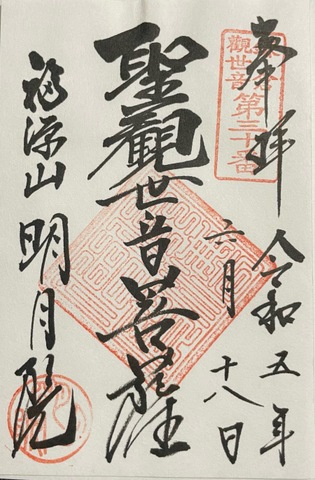 奉拝
令和五年
六月
十八日
觀世音第三十番
聖觀世音菩薩
福源山明月院